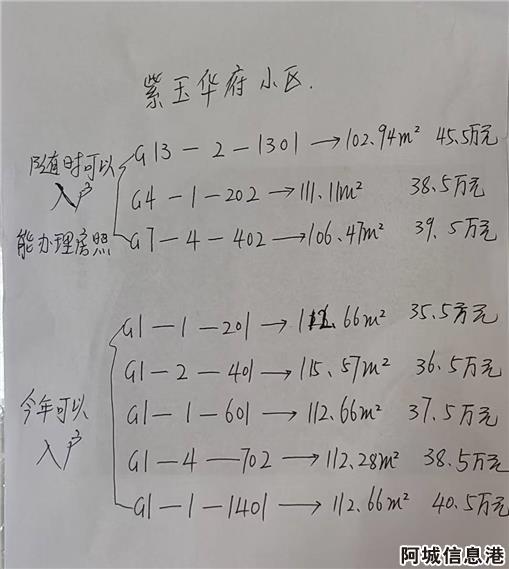 紫玉华府小区.
随时可以入户
能办理房照
G13-2-1301→102.94m² 45.5万元
G4-1-202→111.11m² 38.5万元
G7-4-402→106.47m² 39.5万元
今年可以入户
G1-1-201→112.66m² 35.5万元
G1-2-401→115.57m² 36.5万元
G1-1-601→112.66m² 37.5万元
G1-4-702→112.28m² 38.5万元
G1-1-1401→112.66m² 40.5万元
阿城信息港